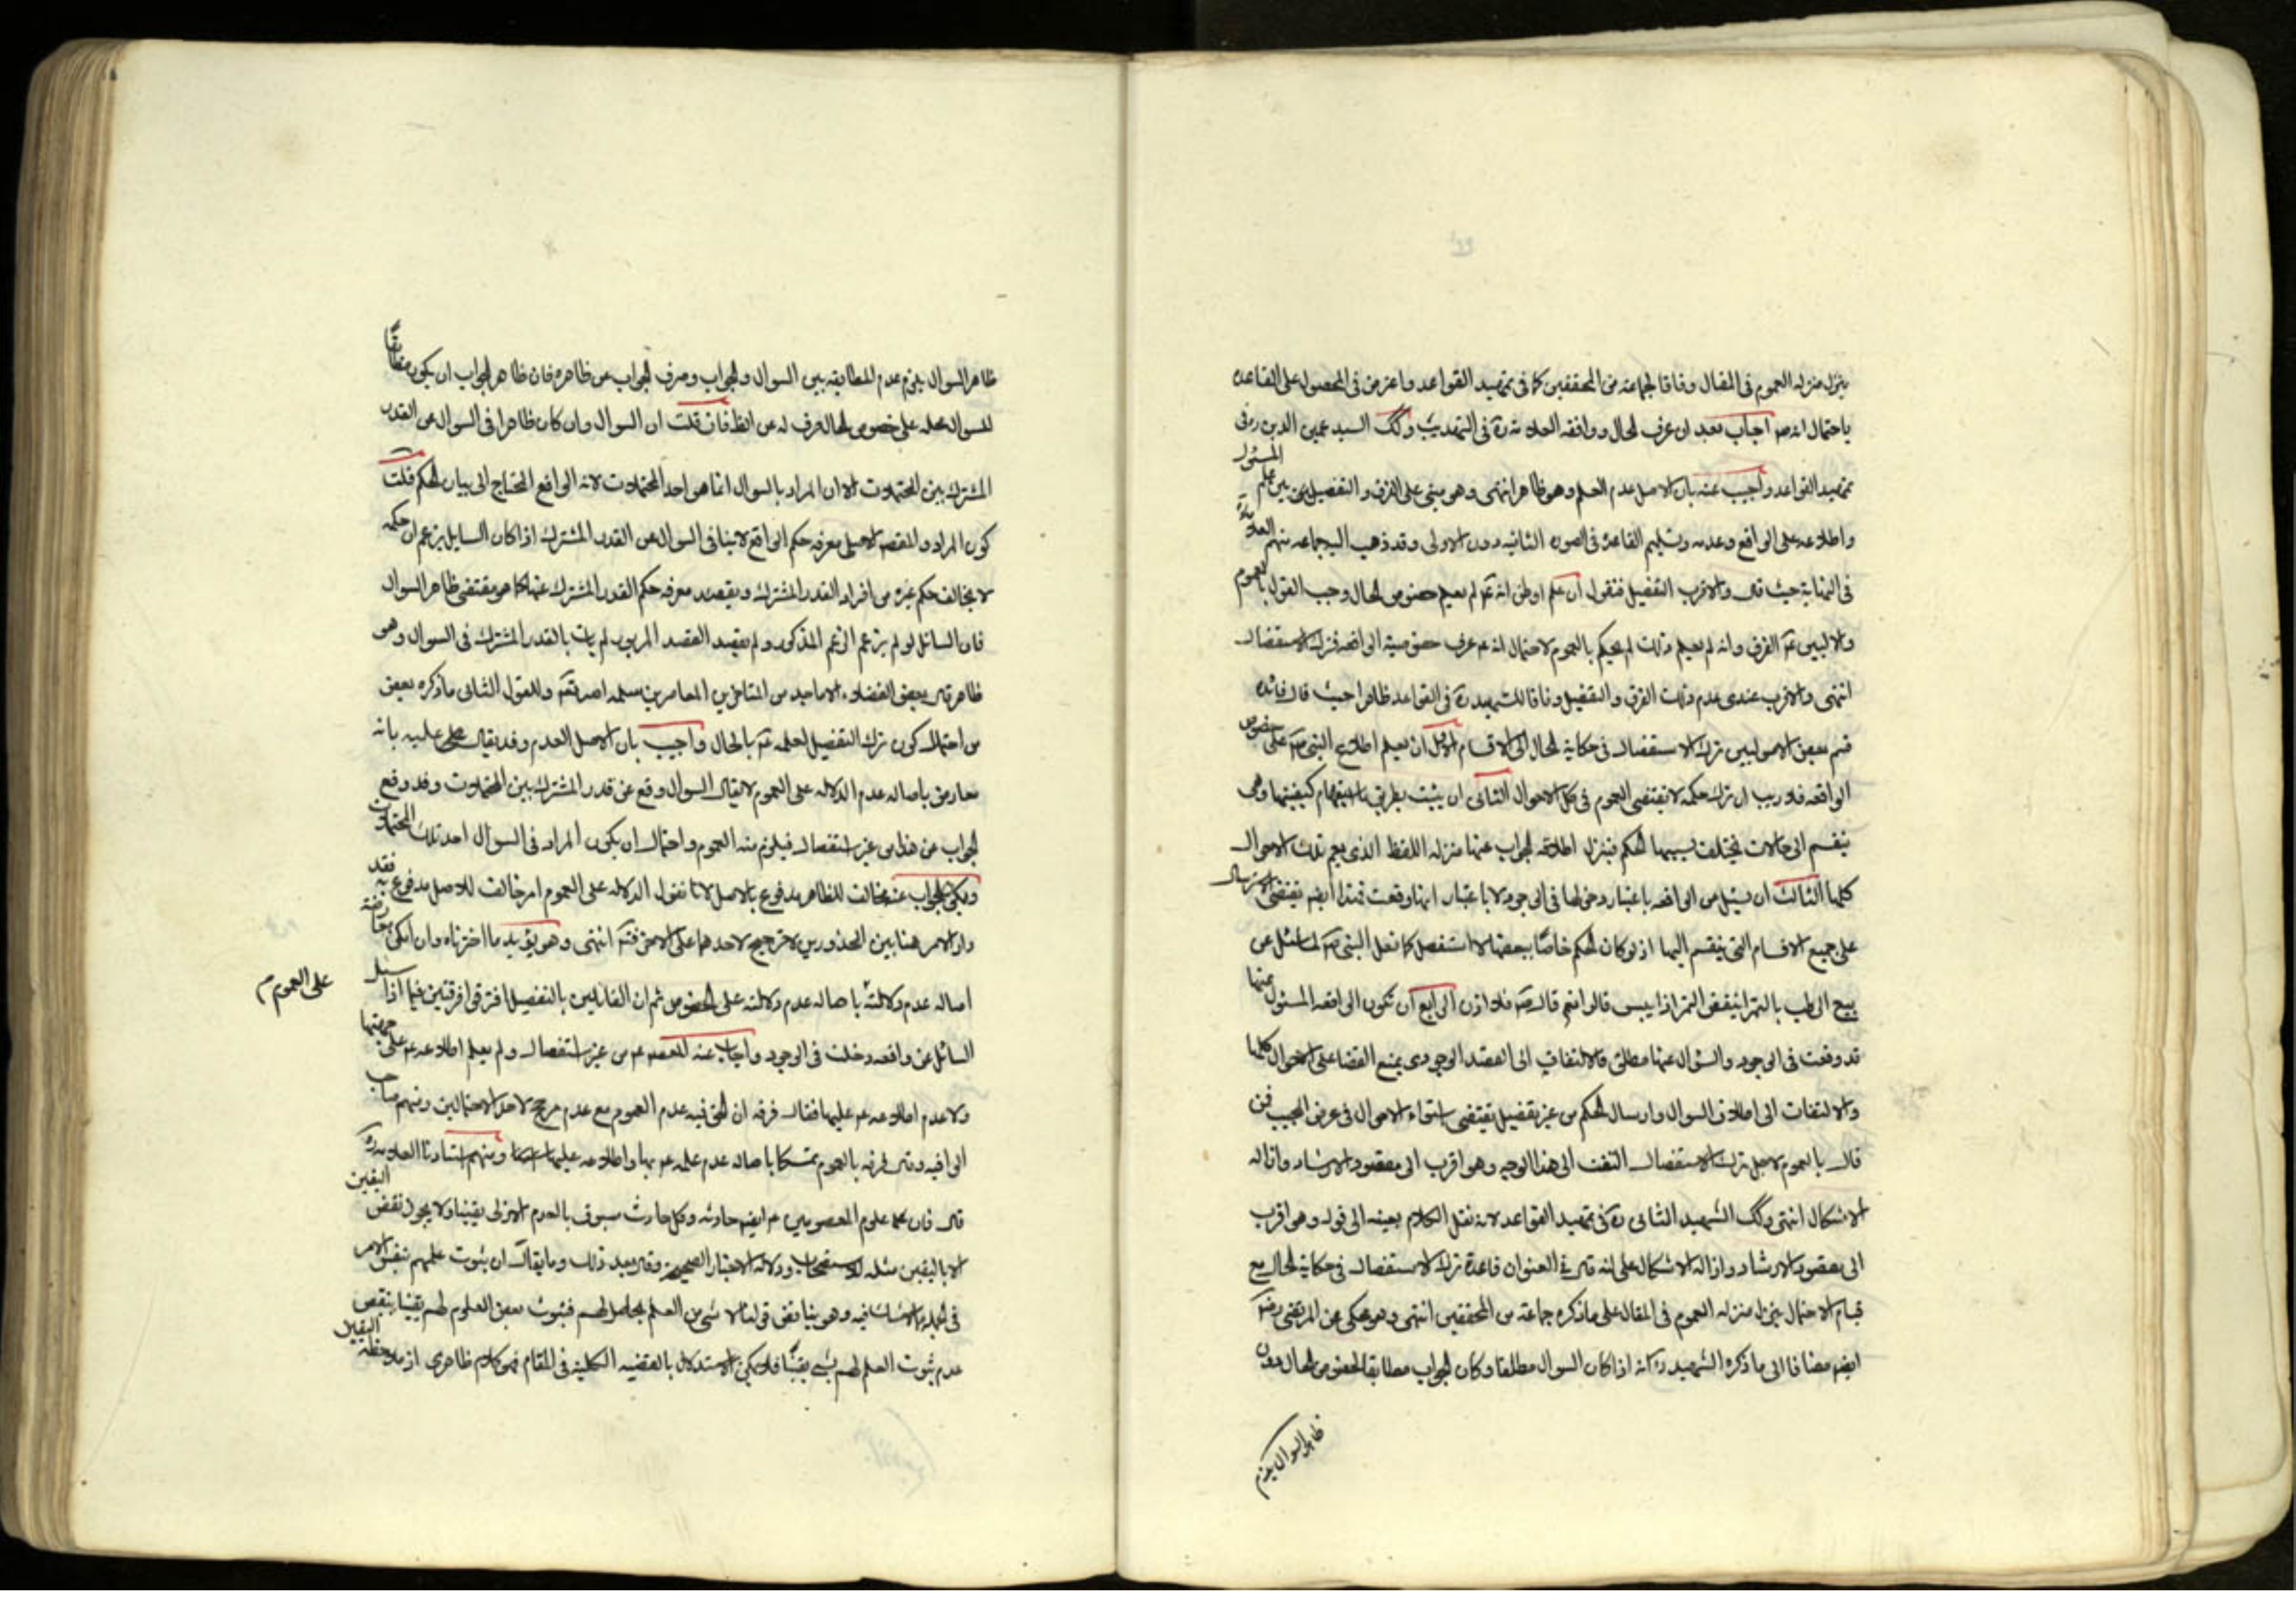 ينزل منزله العموم فى المقال وفاقا لجماعة من المحققين كما فى تمهيد القواعد واعترض فى المحصول على القاعده
باحتمال انه ص اجاب بعد ان عرف الحال ووافقه العلامة ره فى التهذيب وكك السيد عميد الدين وفى
تمهيد القواعد واجيب عنه بان الاصل عدم العلم وهو ظاهر انتهى وهو مبنى على الفرق والتفصيل بين علم المسئول
واطلاعه على الواقع وعدمه وتسليم القاعدة فى الصوره الثانيه دون الاولى وقد ذهب اليه جماعه منهم العلامة
فى النهاية حيث قال والاقرب التفصيل فنقول ان علم او ظن انه ع لم يعلم خصوص الحال وجب القول بالعموم
والا لبين ع الفرق وانه لم يعلم ذلك لم يحكم بالعموم لاحتمال انه ع عرف خصوصية الواقعه فترك الاستفصال
انتهى والاقرب عندى عدم ذلك الفرق والتفصيل وفاقا للشهيد ره فى القواعد ظاهرا حيث قال فائده
قسم بعض الاصوليين ترك الاستفصال فى حكاية الحال الى اقسام الاول ان يعلم اطلاع النبى ص على خصوص
الواقعه فلا ريب ان ترك حكمه لا يقتضى العموم فى كل الاحوال الثانى ان يثبت بطريق استفهام كيفيتها وهى
ينقسم الى حالات يختلف بسببها الحكم فينزل اطلاقه الجواب عنها منزله اللفظ الذى يعم تلك الاحوال
كلها الثالث ان يسئل عن الواقعه باعتبار دخولها فى الوجود لا باعتبار انها وقعت فهذا ايضا يقتضى الاسترسال
على جميع الاقسام التى ينقسم اليها اذ لو كان الحكم خاصا ببعضها لاستفصل كما فعل النبى ص لما سئل عن
بيع الرطب بالتمر اينقص التمر اذا يبس قالوا نعم قال ص فلا اذن الرابع ان تكون الواقعه المسئول عنها
قد وقعت فى الوجود والسؤال عنها مطلق فالالتفات الى القصد الوجودى يمنع القضا على الاحوال كلها
والالتفات الى اطلاق السوال وارسال الحكم من غير تفصيل يقتضى استواء الاحوال فى غرض المجيب فمن
قال بالعموم لاجل ترك الاستفصال التفت الى هذا الوجه وهو اقرب الى مقصود الارشاد وازاله
الاشكال انتهى وكك الشهيد الثانى ره فى تمهيد القواعد لانه نقل الكلام بعينه الى قوله وهو اقرب
الى مقصود الارشاد وازاله الاشكال على انه قال فى العنوان قاعدة ترك الاستفصال فى حكاية الحال مع
قيام الاحتمال ينزل منزله العموم فى المقال على ما ذكره جماعة من المحققين انتهى وهو محكى عن المرتضى رض
ايضا مضافا الى ما ذكره الشهيد ره انه اذا كان السوال مطلقا وكان الجواب مطابقا لخصوص الحال دون
ظاهر السوال يلزم
ظاهر السوال يلزم عدم المطابقه بين السوال والجواب وصرف الجواب عن ظاهره فان ظاهر الجواب ان يكون مطابقا
للسوال فحمله على خصوص الحال صرف له عن الظ فان قلت ان السوال وان كان ظاهرا فى السوال عن القدر
المشترك بين المحتملات الا ان المراد بالسوال انما هى احد المحتملات لانه الواقع المحتاج الى بيان الحكم قلت
كون المراد والمقصد الاصلى معرفه حكم الواقع لا ينافى السوال عن القدر المشترك اذا كان السايل يزعم ان حكمه
لا يخالف حكم غيره من افراد القدر المشترك ويقصد معرفه حكم القدر المشترك عنها كما هو مقتضى ظاهر السوال
فان السائل لو لم يزعم الزعم المذكور ولم يقصد القصد المزبور لم يات بالقدر المشترك فى السوال وهو
ظاهر قال بعض الفضلاء الاماجد من المتاخرين المعاصرين سلمه الله تعالى وللقول الثانى ما ذكره بعض
من احتمال كون ترك التفصيل لعلمه ع بالحال واجيب بان الاصل العدم وقد يقال عليه بانه
معارض باصاله عدم الدلاله على العموم لا يقال السوال وقع عن قدر المشترك بين المحتملات وقد وقع
الجواب عن هذا من غير استفصال فيلزم منه العموم واحتمال ان يكون المراد فى السوال احد تلك المحتملات
وبكون الجواب عنه مخالف للظاهر مدفوع بالاصل لانا نقول الدلاله على العموم امر مخالف للاصل مدفوع به فقد
دار الامر هنا بين المحذورين لا ترجيح لاحدهما على الاخر فتم انتهى وهو يؤيد ما اخترناه وان امكن معارضة
اصاله عدم دلالته باصاله عدم دلالته على الخصوص ثم ان القائلين بالتفصيل افترقوا فرقتين فيما اذا سئل
على العموم م
السائل عن واقعه دخلت فى الوجود واجاب عنه المعصوم ع من غير استفصال ولم يعلم اطلاعه ع على جهتها
ولا عدم اطلاعه ع عليها فقال فرقه ان الحق فيه عدم العموم مع عدم مرجح لاحد الاحتمالين ومنهم صاحب
الوافيه وقال فرقه بالعموم تمسكا باصاله عدم علمه ع بها واطلاعه عليها ومنهم استادنا العلامه ره
قال فان علوم المعصومين ع ايضا حادثه وكل حادث مسبوق بالعدم الازلى يقينا ولا يجوز نقض اليقين
الا باليقين مثله للاستصحاب ودلاله الاخبار الصحيحه وقال بعد ذلك وما يقال ان ثبوت علمهم بنفس الامر
فى الجمله مما لا شك فيه وهو يناقض قولنا لا شى من العلم بحاصل لهم فثبوت بعض العلوم لهم يقينا ينقض
عدم ثبوت العلم لهم بشى يقينا فلا يمكن الاستدلال بالقضيه الكليه فى المقام فهو كلام ظاهرى اذ ملاحظه اليقين